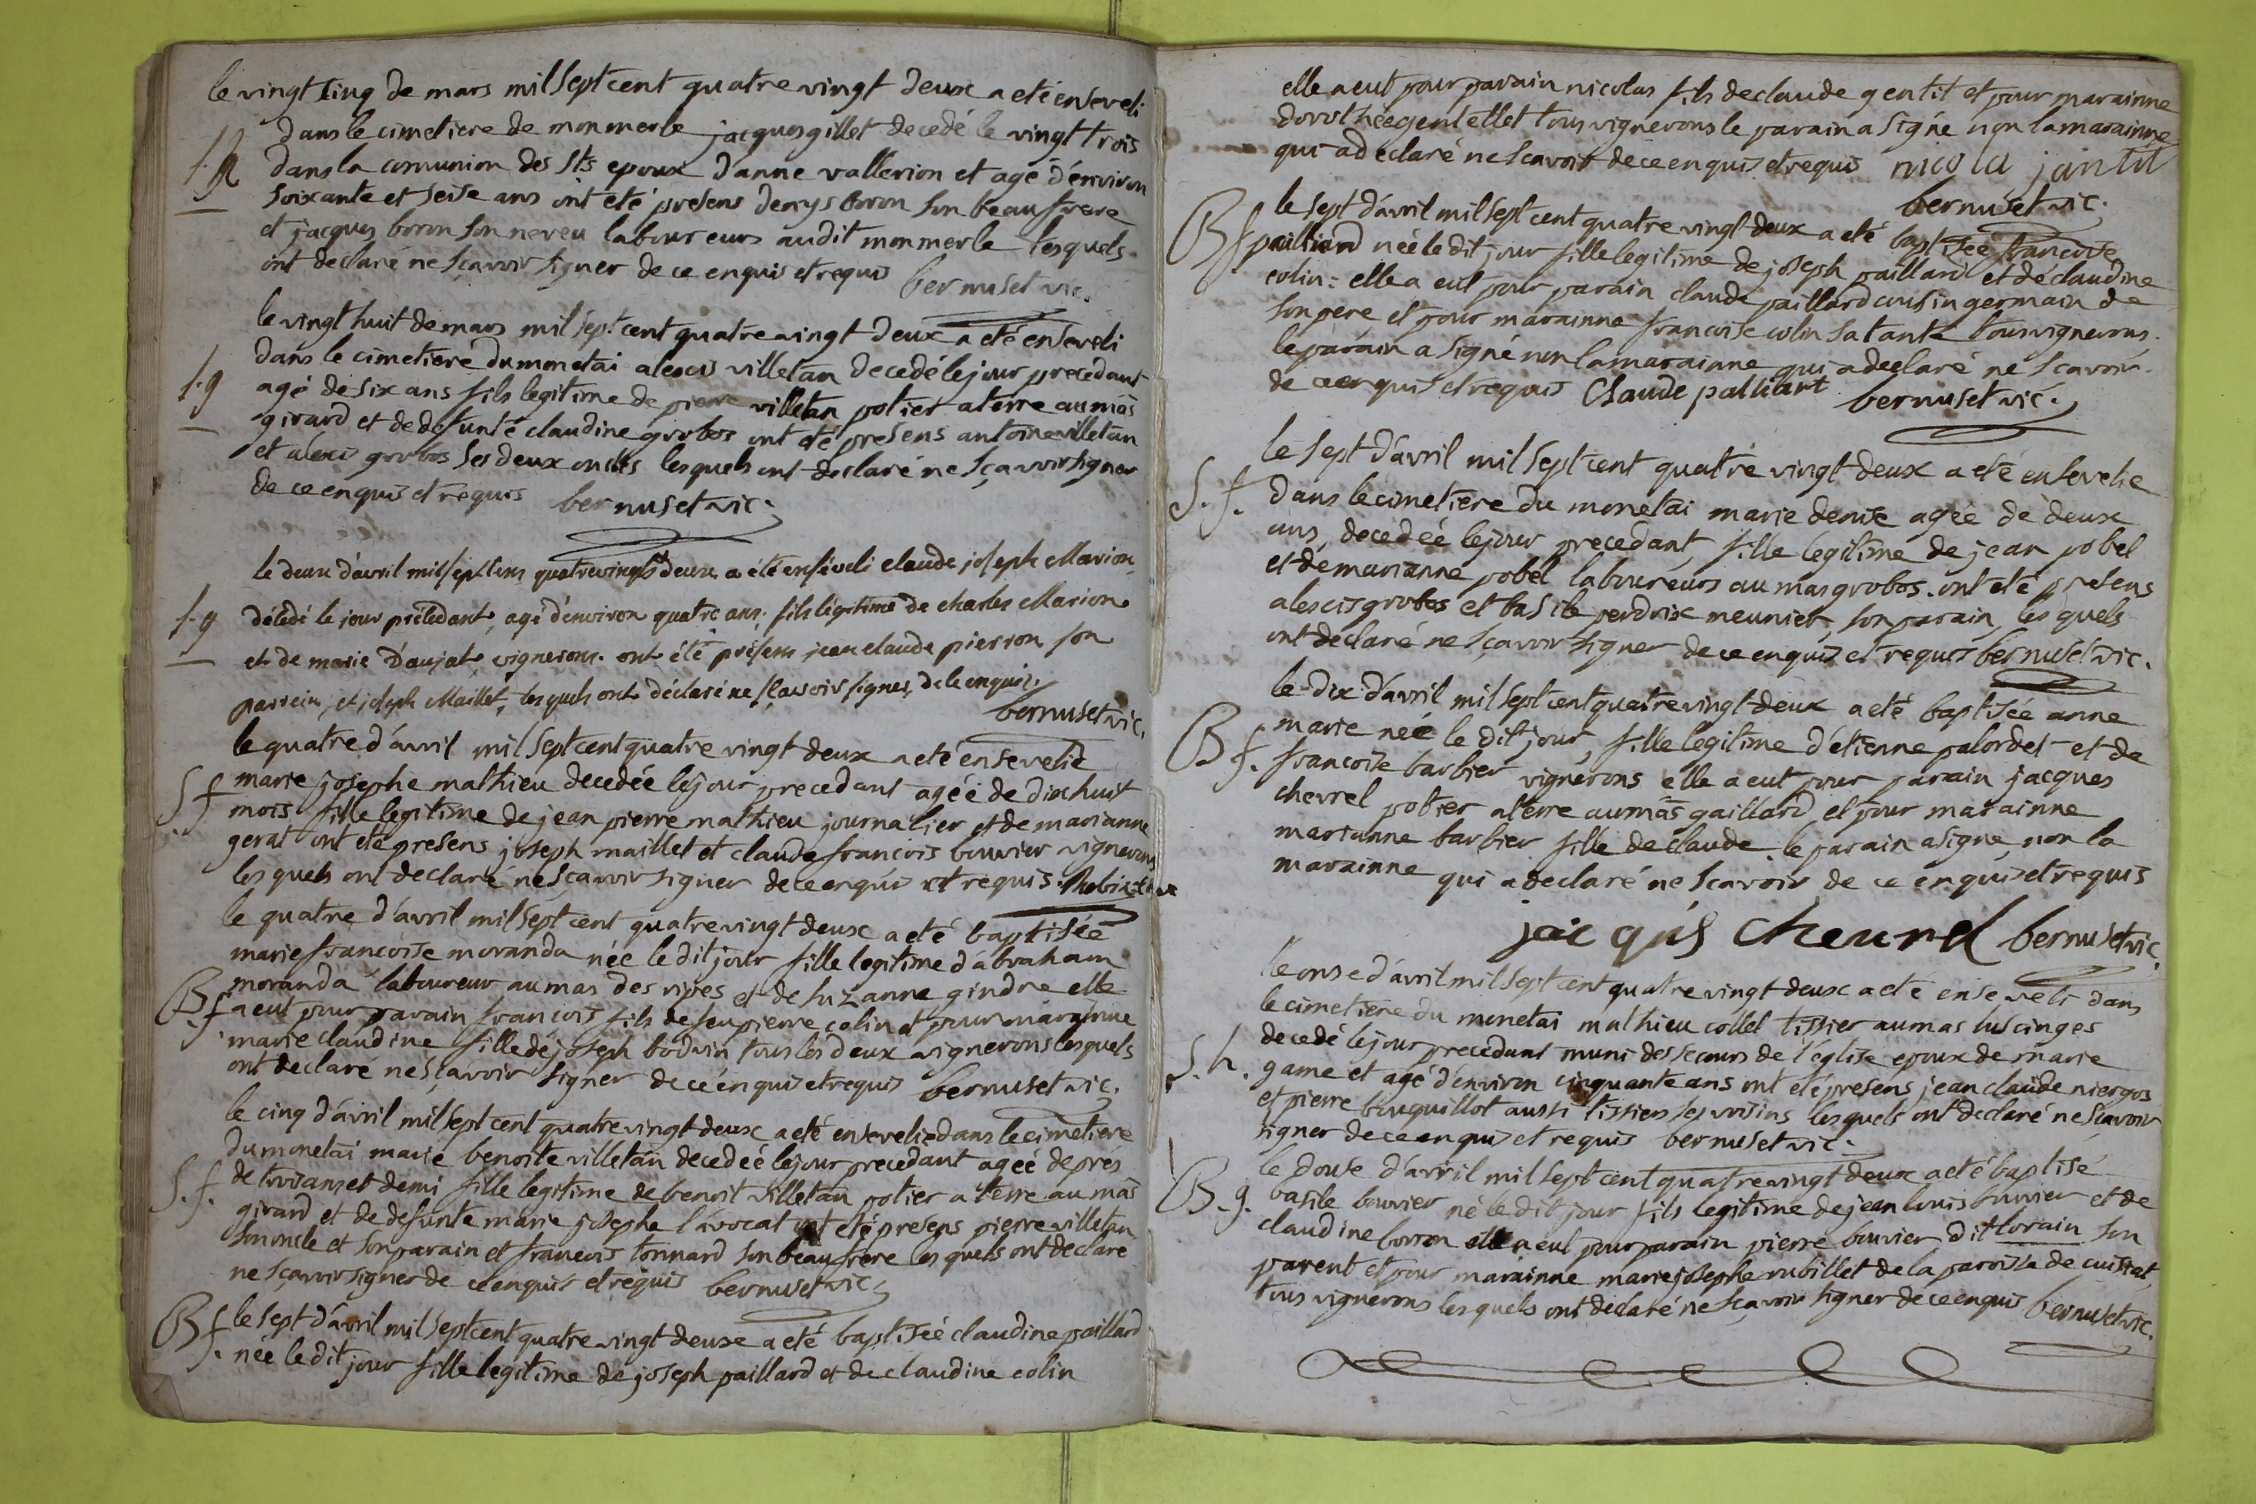 le vingt cinq de mars mil sept cent quatre vingt deux a eté enseveli
dans le cimetiere de monmerle jacques gillet decedé le vingt trois
S. h dans la comunion des Sts epoux d'anne vallerion et agé d'environ
soixante et seise ans ont été presens denys boron son beau frere
et jacques boron son neveu laboureurs audit monmerle lesquels
ont declaré ne sçavoir signer de ce enquis et requis bernuset vic.
le vingt huit de mars mil sept cent quatre vingt deux a eté enseveli
dans le cimetiere du monetai alexis villetan decedé le jour precedant
S. g agé de six ans fils legitime de pierre villetan potier a terre au mas
girard et de defunte claudine grobos ont eté presens antoine villetan
et alexis grobos ses deux oncles lesquels ont declaré ne sçavoir signer
de ce enquis et requis bernuset vic.
le deux d'avril mil sept cens quatre vingts deux a été enséveli claude joseph Marion
S. g décédé le jour précédant, agé d'environ quatre ans, fils légitime de charles Marion
et de marie Daujat, vignerons. ont été présens jean claude pierron son
parrein, et joseph Maillet, lesquels ont déclaré ne sçavoir signer, de ce enquis.
bernuset vic.
le quatre d'avril mil sept cent quatre vingt deux a eté ensevelie
S. f marie josephe mathieu decedée le jour precedant ageé de dix huit
mois fille legitime de jean pierre mathieu journalier et de marianne
gerat ont eté presens joseph maillet et claude francois bouvier vignerons
lesquels ont declaré ne sçavoir signer de ce enquis et requis.
le quatre d'avril mil sept cent quatre vingt deux a eté baptiseé
marie francoise moranda née le dit jour fille legitime d'abraham
moranda laboureur au mas des ripes et de suzanne gindre elle
B. f a eut pour parain francois fils de feu pierre colin et pour marainne
marie claudine fille de joseph bodvin tous les deux vignerons lesquels
ont declaré ne sçavoir signer de ce enquis et requis bernuset vic.
le cinq d'avril mil sept cent quatre vingt deux a eté ensevelie dans le cimetiere
du monetai marie benoite villetan decedeé le jour precedant ageé de prés
S. f. de trois ans et demi fille legitime de benoit villetan potier a terre au mas
girard et de defunte marie josephe l'avocat ont eté presens pierre villetan
son oncle et son parain et francois tonnard son beau frere lesquels ont declaré
ne sçavoir signer de ce enquis et requis bernuset vic.
B. f. le sept d'avril mil sept cent quatre vingt deux a eté baptiseé claudine paillard
née le dit jour fille legitime de joseph paillard et de claudine colin
elle a eut pour parain nicolas fils de claude gentit et pour marainne
dorothée gentellet tous vignerons le parain a signé non la marainne
qui a declaré ne scavoir de ce enquis et requis nicola jantit
bernuset vic.
le sept d'avril mil sept cent quatre vingt deux a eté baptisée francoise
B f paillard née le dit jour fille legitime de joseph paillard et de claudine
colin : elle a eut pour parain claude paillard cousin germain de
son pere et pour marainne francoise colin sa tante tous vignerons.
le parain a signé non la marainne qui a declaré ne scavoir
de ce enquis et requis Claude palliart bernuset vic.
le sept d'avril mil sept cent quatre vingt deux a eté ensevelie
S. f. dans le cimetiere du monetai marie denise ageé de deux
ans, decedeé le jour precedant, fille legitime de jean pobel
et de marianne pobel laboureurs au mas grobos. ont eté presens
alexis grobos et basile perdrix meunier, son parain, lesquels
ont declaré ne sçavoir signer de ce enquis et requis bernuset vic.
le dix d'avril mil sept cent quatre vingt deux a eté baptisée anne
B f. marie neé le dit jour, fille legitime d'etienne palordet et de
francoise barbier vignerons elle a eut pour parain jacques
chevrel potier a terre au mas gaillard, et pour marainne
marianne barbier fille de claude. le parain a signe, non la
marainne qui a declaré ne scavoir de ce enquis et requis
jacquis cheurel bernuset vic.
le onse d'avril mil sept cent quatre vingt deux a eté enseveli dans
le cimetiere du monetai mathieu collet tissier au mas luscinges
decedé le jour precedant muni des secours de l'église epoux de marie
S. h. game et agé d'environ cinquante ans ont eté presens jean claude niergos
et pierre bouquillot aussi tissiers ses voisins lesquels ont declaré ne scavoir
signer de ce enquis et requis bernuset vic.
le douse d'avril mil sept cent quatre vingt deux a eté baptisé
B. g. basile bouvier né le dit jour fils legitime de jean louis bouvier et de
claudine borron a eut pour parain pierre bouvier dit lorain son
parent et pour marainne marie josephe rubillet de la paroisse de cuisiat,
tous vignerons lesquels ont declaré ne sçavoir signer de ce enquis bernuset vic.